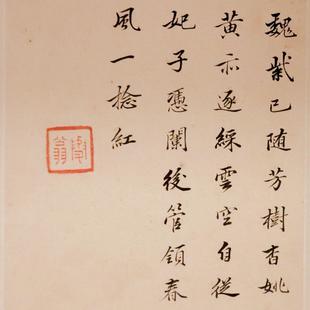 魏紫已随芳樹杳姚
黄亦逐綵雲空自從
妃子憑闌後管領春
風一捻紅
翁